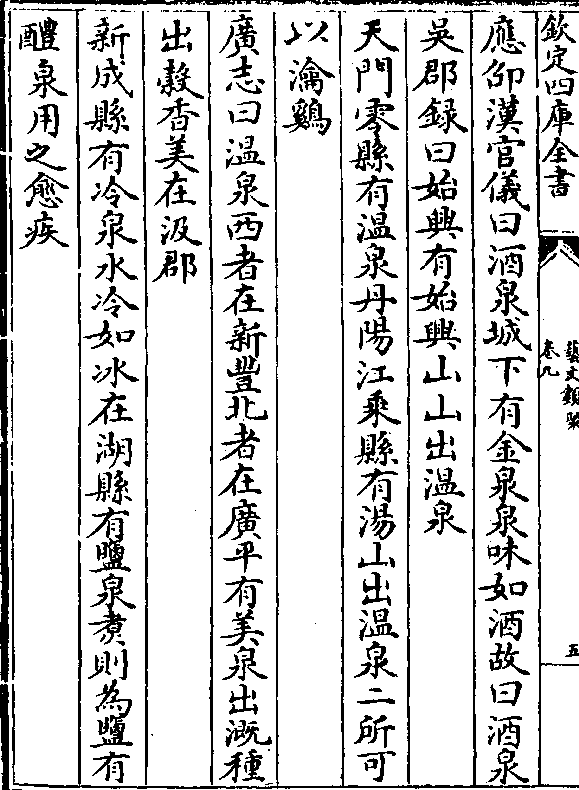 欽定四庫全書
藝文類聚
卷九
五
應劭漢官儀曰酒泉城下有金泉泉味如酒故曰酒泉
吳郡録曰始興有始興山山出溫泉
天門零縣有溫泉丹陽江乘縣有湯山出溫泉二所可
以瀹鷄
廣志曰溫泉西者在新豐北者在廣平有美泉出溉種
出穀香美在汲郡
新成縣有冷泉水冷如冰在湖縣有鹽泉煑則為鹽有
醴泉用之愈疾